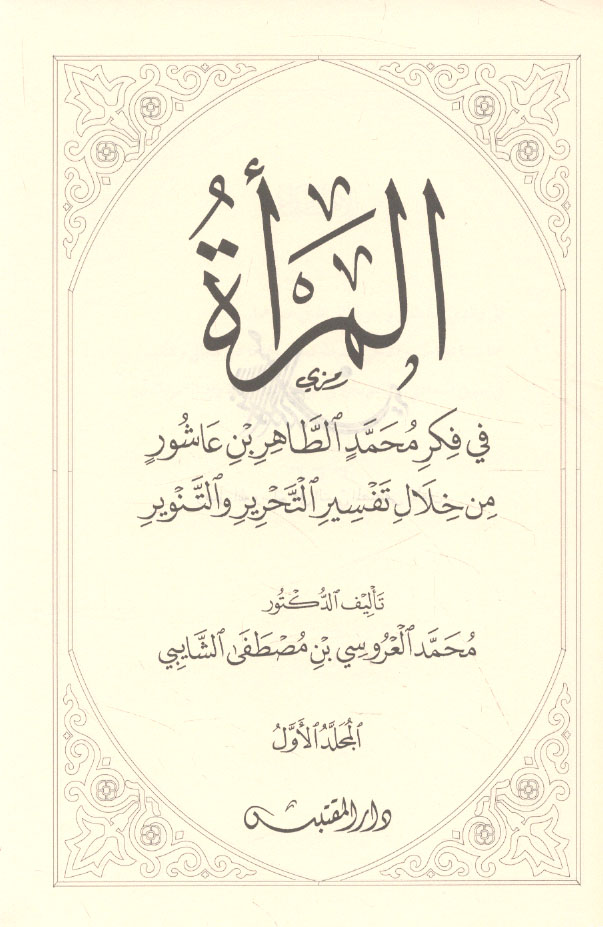 المرأةُ
رمزي
في فِكرِ مُحَمَّدٍ ٱلطَّاهِرِ بْنِ عَاشُورٍ
مِن خِلَالِ تَفْسِيرِ ٱلتَّحْرِيرِ وٱلتَّنْوِيرِ
تَأْلِيْف ٱلدُّكْتُور
مُحَمَّد ٱلْعَرُوسِي بْنِ مُصْطَفَىٰ ٱلشَّايِبِي
ٱلمُجَلَّدُ ٱلأَوَّلُ
دار المقتبس